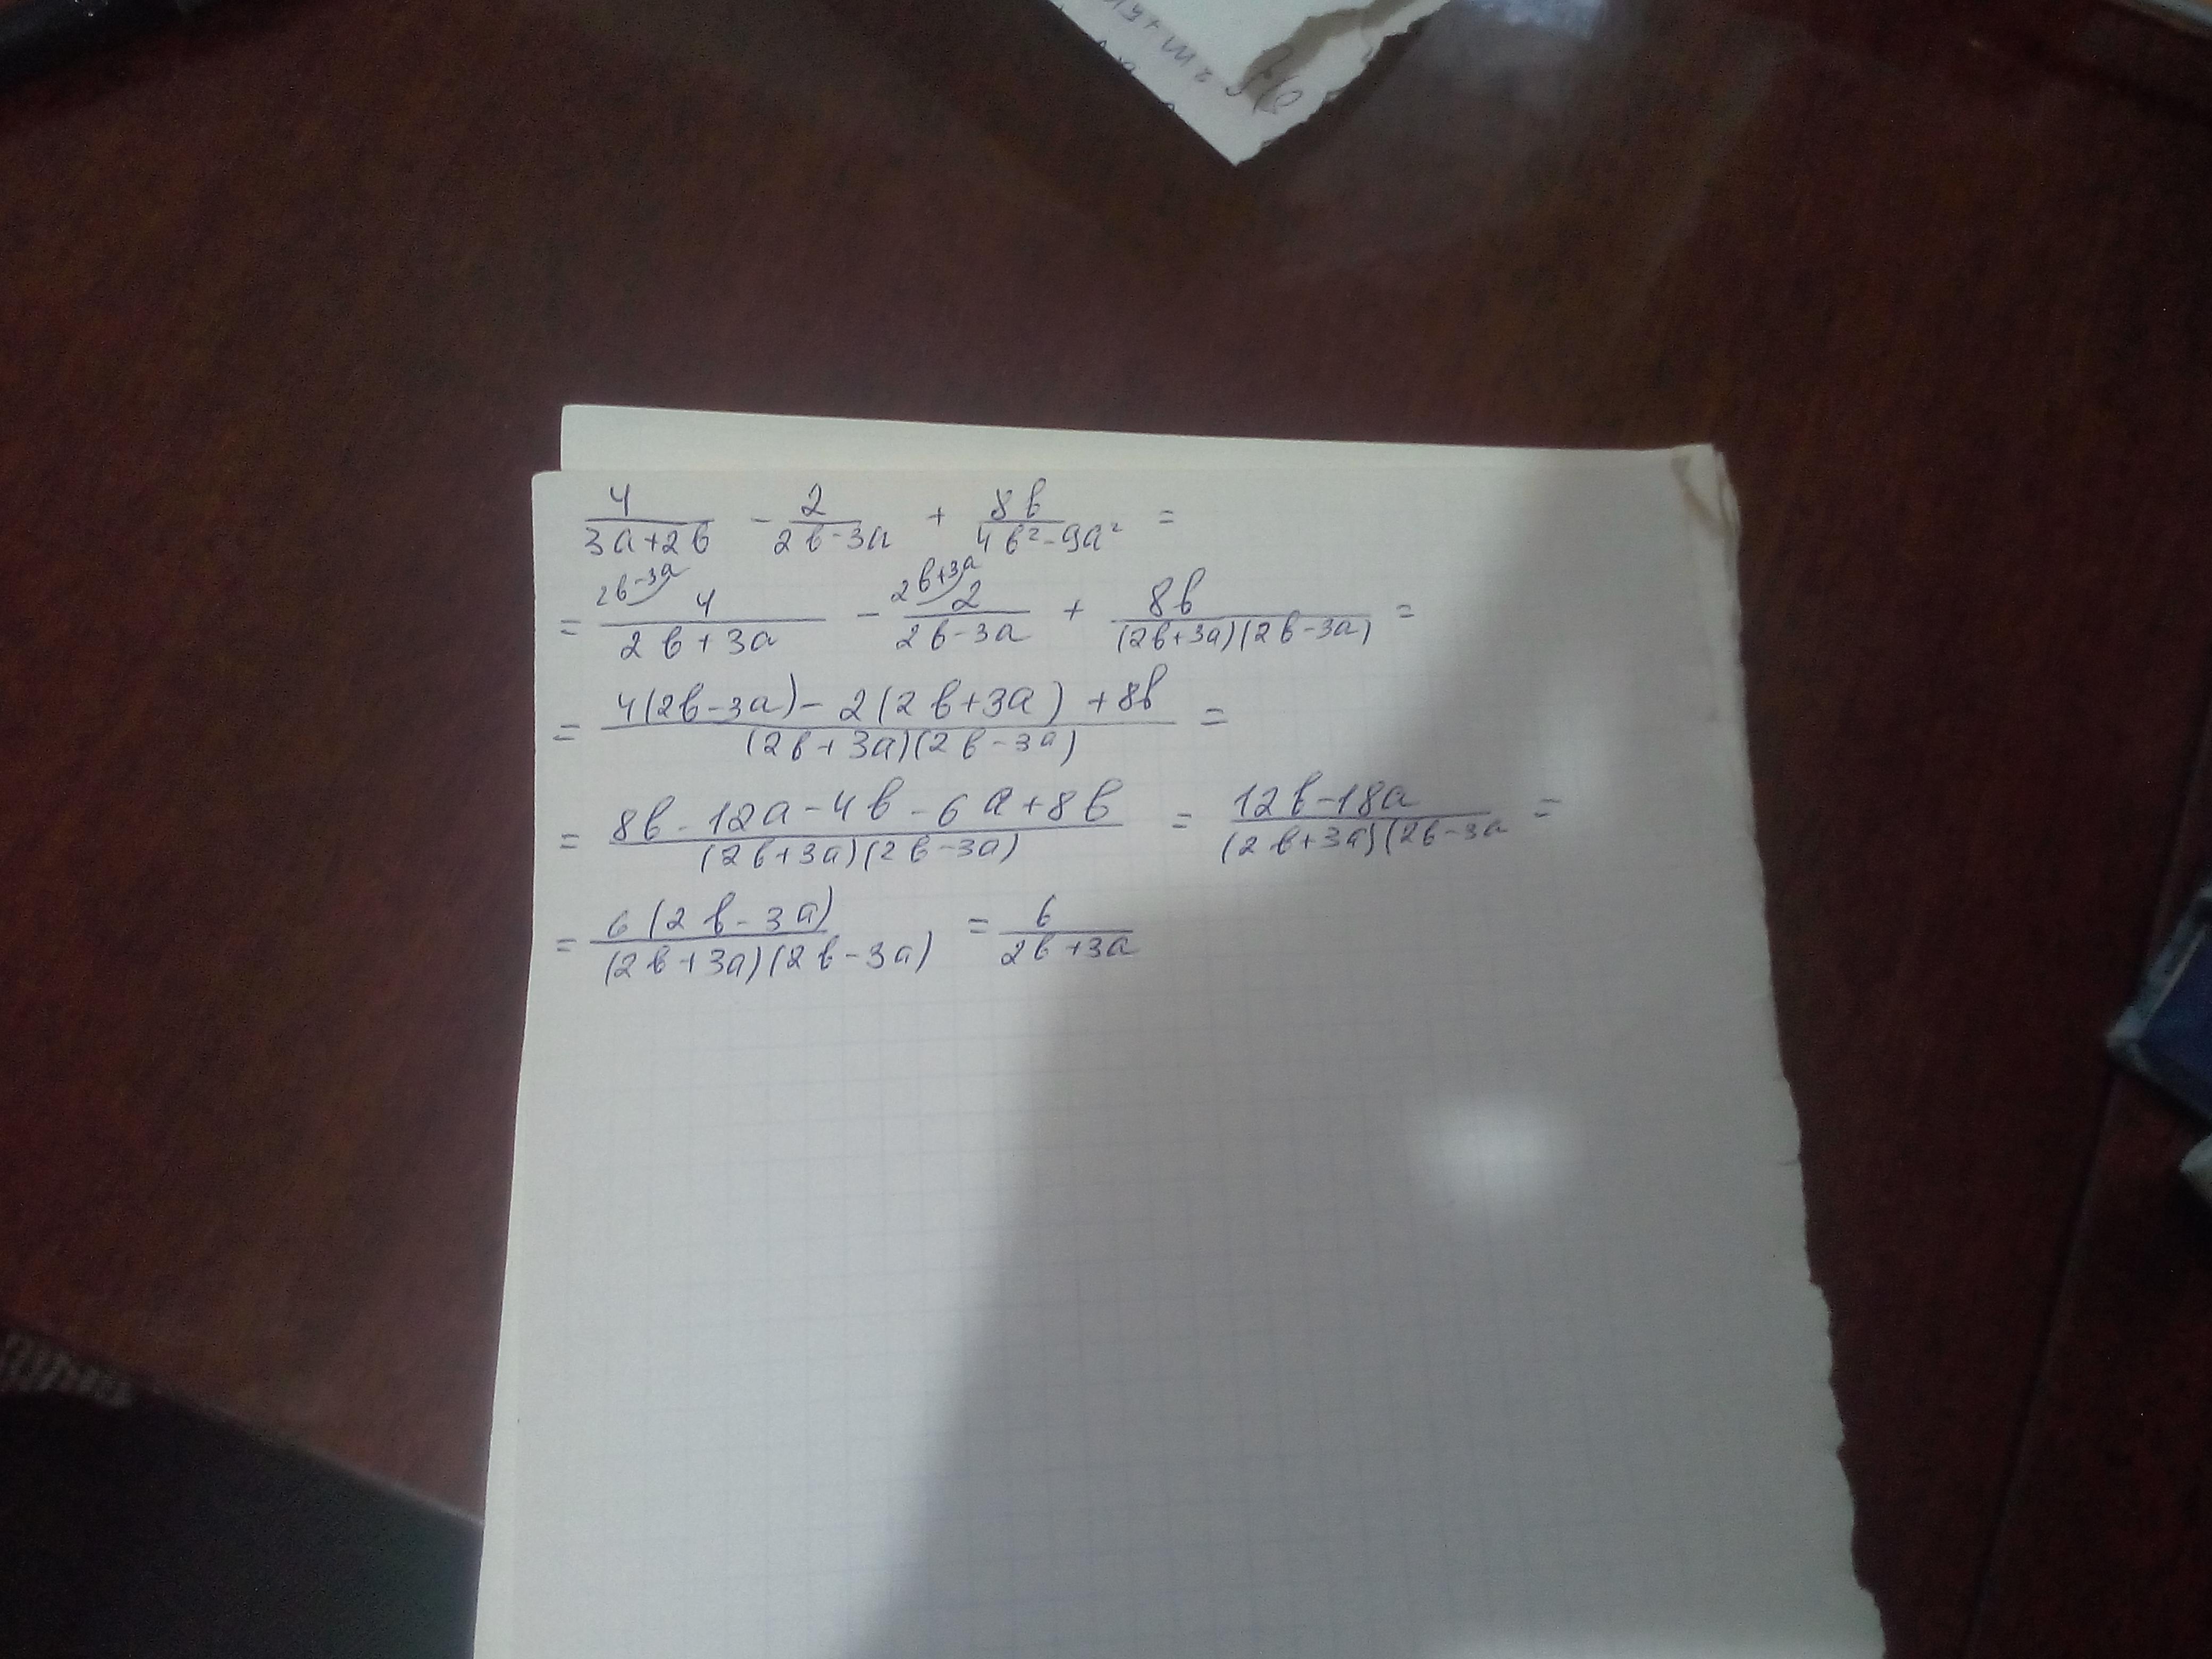 4/(3a+2b) - 2/(2b-3a) + 8b/(4b²-9a²) =
= 2b-3a 4/(2b+3a) - 2b+3a 2/(2b-3a) + 8b/((2b+3a)(2b-3a)) =
= (4(2b-3a) - 2(2b+3a) + 8b)/((2b+3a)(2b-3a)) =
= (8b-12a-4b-6a+8b)/((2b+3a)(2b-3a)) = (12b-18a)/((2b+3a)(2b-3a =
= 6(2b-3a)/((2b+3a)(2b-3a)) = 6/(2b+3a)